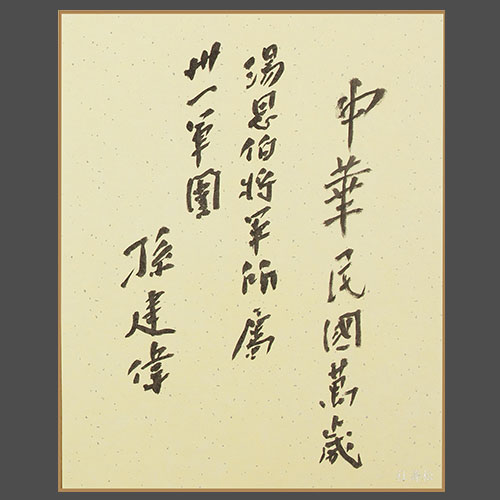 中華民國萬歲
湯恩伯將軍所屬
卅一軍團
孫建偉